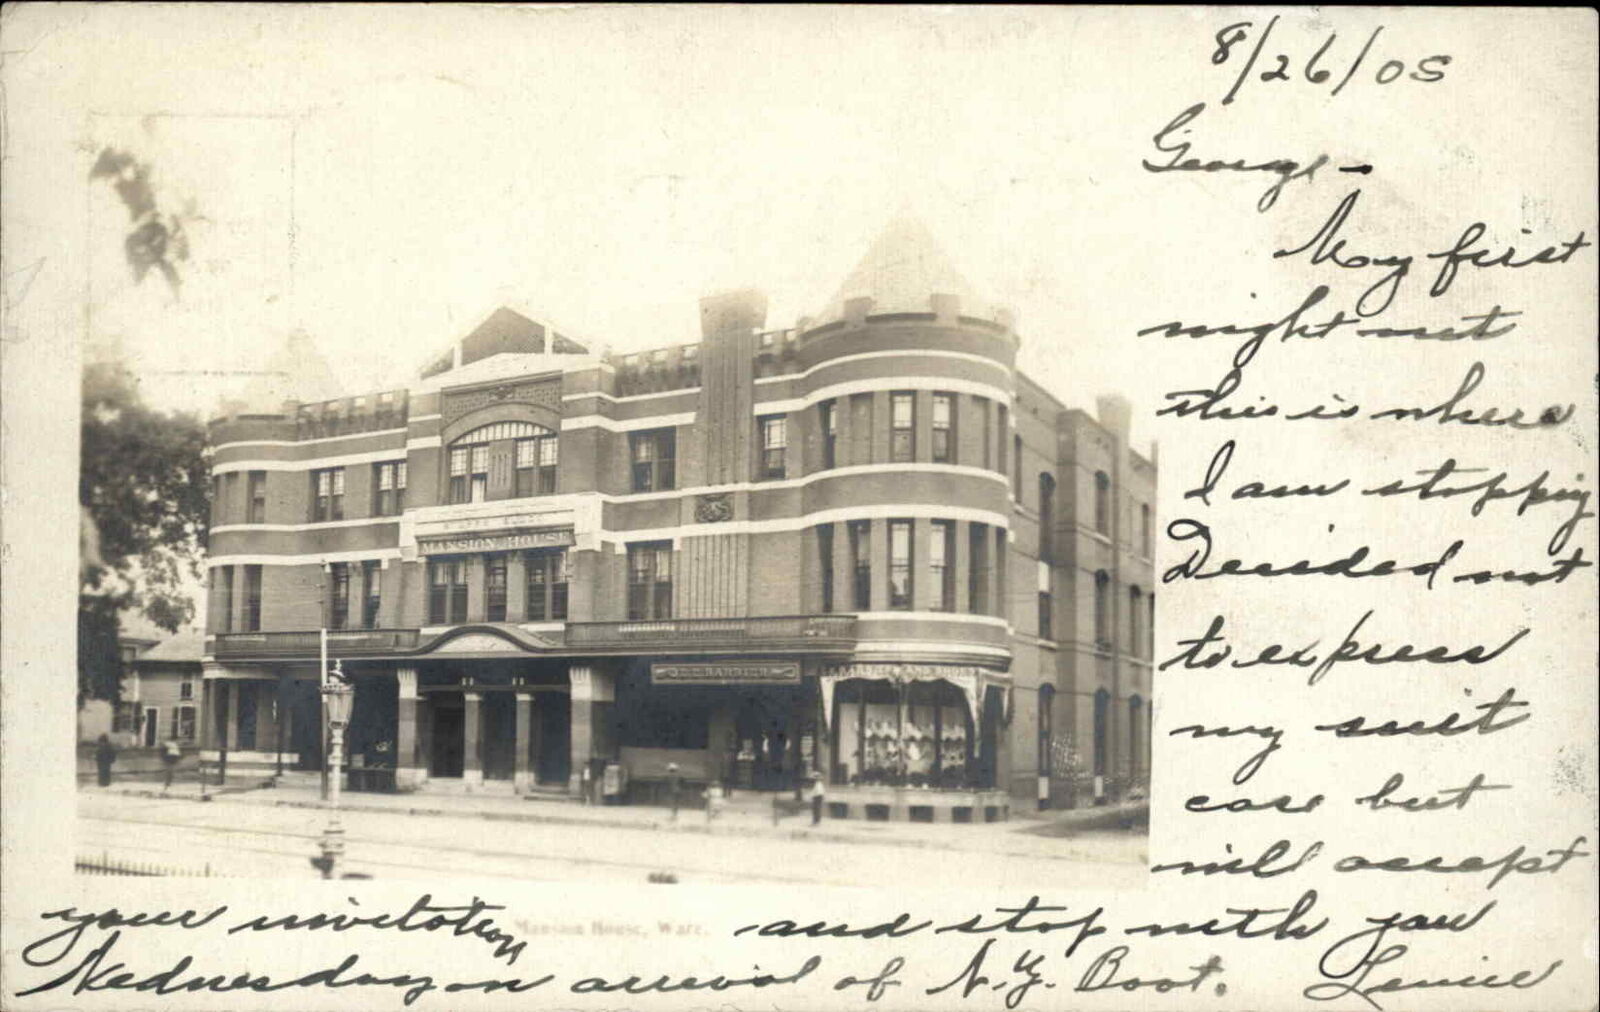 8/26/05
George -
May first
night out
this is where
I am stopping
Decided not
to express
my suit
case but
will accept
your invitation and stop with you
Wednesday on arrival of N.Y. Boat.
Mansion House, Ware.
MANSION HOUSE